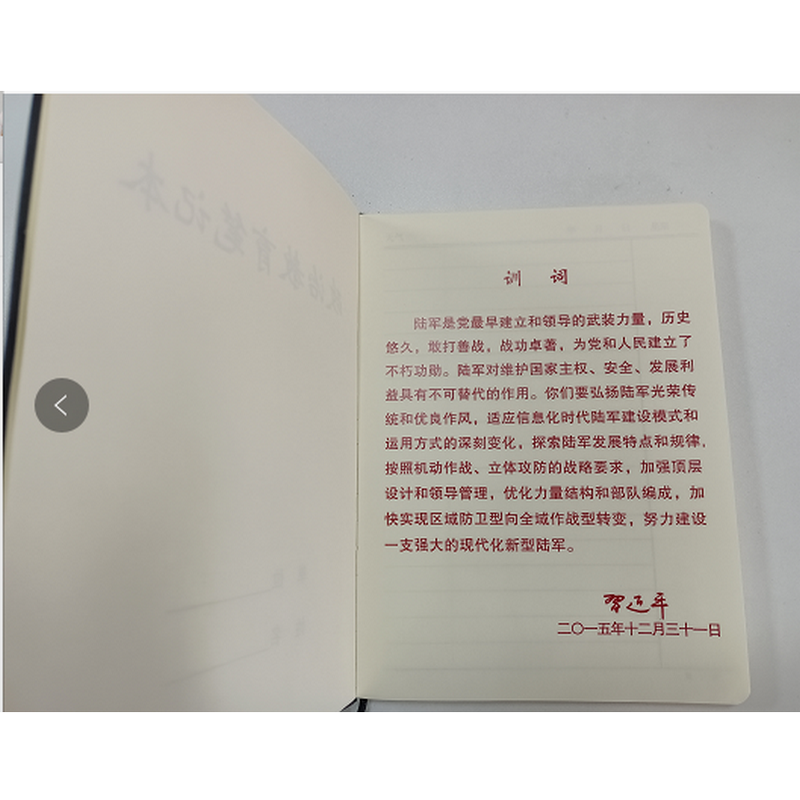 政治教育笔记本
训 词
陆军是党最早建立和领导的武装力量，历史
悠久，敢打善战，战功卓著，为党和人民建立了
不朽功勋。陆军对维护国家主权、安全、发展利
益具有不可替代的作用。你们要弘扬陆军光荣传
统和优良作风，适应信息化时代陆军建设模式和
运用方式的深刻变化，探索陆军发展特点和规律，
按照机动作战、立体攻防的战略要求，加强顶层
设计和领导管理，优化力量结构和部队编成，加
快实现区域防卫型向全域作战型转变，努力建设
一支强大的现代化新型陆军。
习近平
二〇一五年十二月三十一日